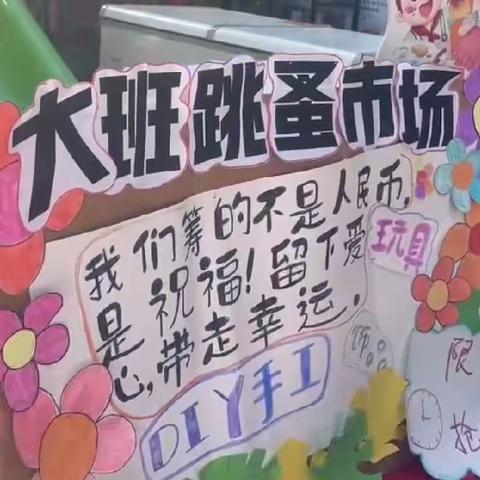 大班跳蚤市场
我们筹的不是人民币,
是祝福!留下爱
心,带走幸运.
玩具
饰
DIY手工
限
抢